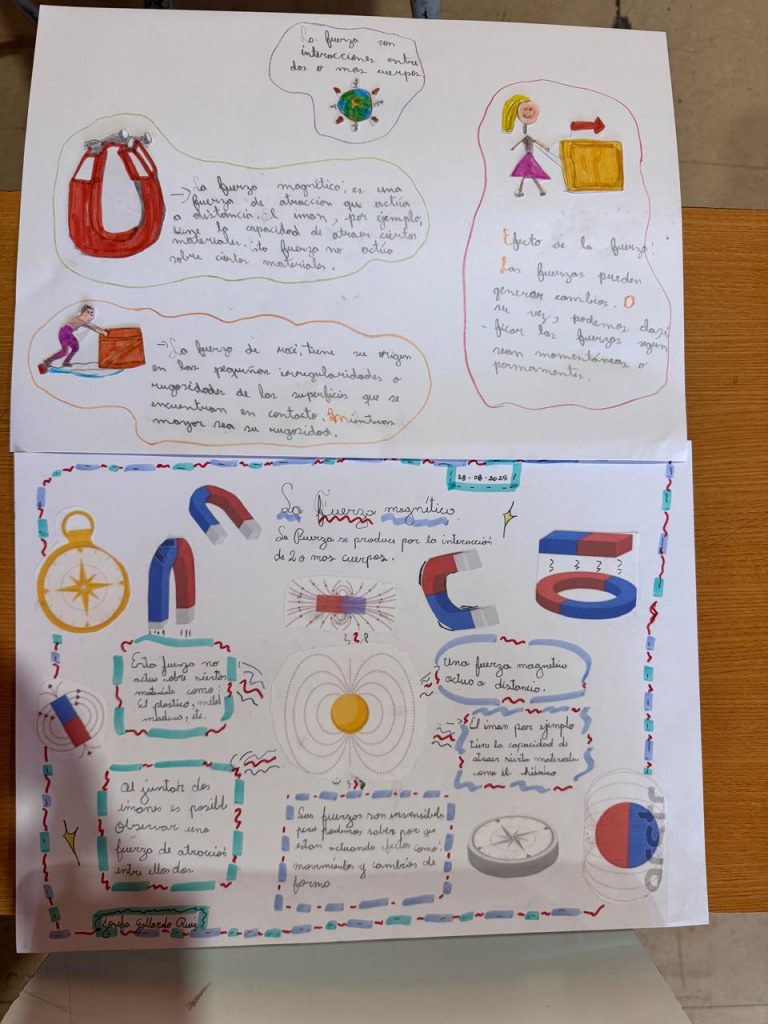 La fuerza son
interacciones entre
dos o mas cuerpos
La fuerza magnético: es una
fuerza de atracción que actúa
a distancia. El iman, por ejemplo,
tiene la capacidad de atraer ciertos
materiales. Esta fuerza no actúa
sobre ciertos materiales.
Efecto de la fuerza:
Las fuerzas pueden
generar cambios. O
su vez, podemos clasi
-ficar las fuerzas segun
sean momentáneas o
permamentes.
La fuerza de roce, tiene su origen
en las pequeñas irregularidades o
rugosidades de las superficies que se
encuentran en contacto. Mientras
mayor sea su rugosidad.
28-08-2025
La Fuerza magnético.
La Fuerza se produce por la interacción
de 2 o mas cuerpos.
Esta fuerza no
actua sobre siertos
materiales como:
El plastico, metal
madera, etc.
Una fuerza magnetica
actua a distancia.
El iman por ejemplo
tiene la capacidad de
atraer sierto materiales
como el
Al juntar dos
imanes es posibl
observar una
fuerza de atracción
entre ellos dos.
Las fuerzas son invensibl
pero podemos saber por que
estan actuando efectos como:
movimientos y cambios de
forma
Gallardo